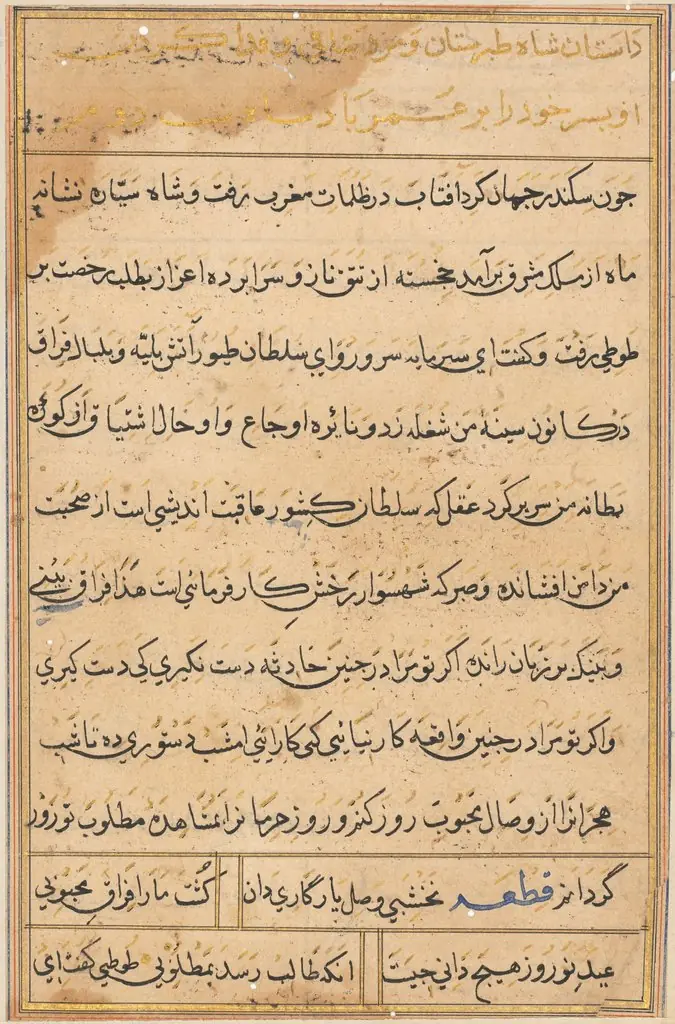 داستان شاه طبرستان و مرد
او پسر خود را بر
جون سکندر جهان کرد آفتاب در ظلمات مغرب رفت و شاه سیّاره نشانه
ماه از ملک مشرق برآمد خجسته از تتق ناز و سرابرده اعزاز بطلب رخصت بر
طوطی رفت و کفت ای سرمایه سرور و ای سلطان طیور آتش بلیّه و بلبال فراق
در کانون سینهٔ من شعله زد و نایره اوجاع و اوحال اشتیاق از کوره
بطانه من سر بر کرد عقل که سلطان کشور عاقبت اندیشی است از صحبت
من دامن افشانده و صبر که شهسوار رخش کارفرمائی است هذا فراق بینی
و بینک بر زبان رانده اکر تو مرا در جنین حادثه دست نکیری کی دست کیری
و اکر تو مرا در جنین واقعه کار نیائی کی کار آئی امشب دستوری ده تا شب
هجرانرا از وصال محبوب روز کنم و روز حرمانرا بمشاهدهٔ مطلوب نوروز
گردانم قطعه نخشبی وصل یار کاری دان کُشت ما را فراق محبوبی
عید نوروز هیج دانی جیت انکه طالب رسد بمطلوبی طوطی کفت ای